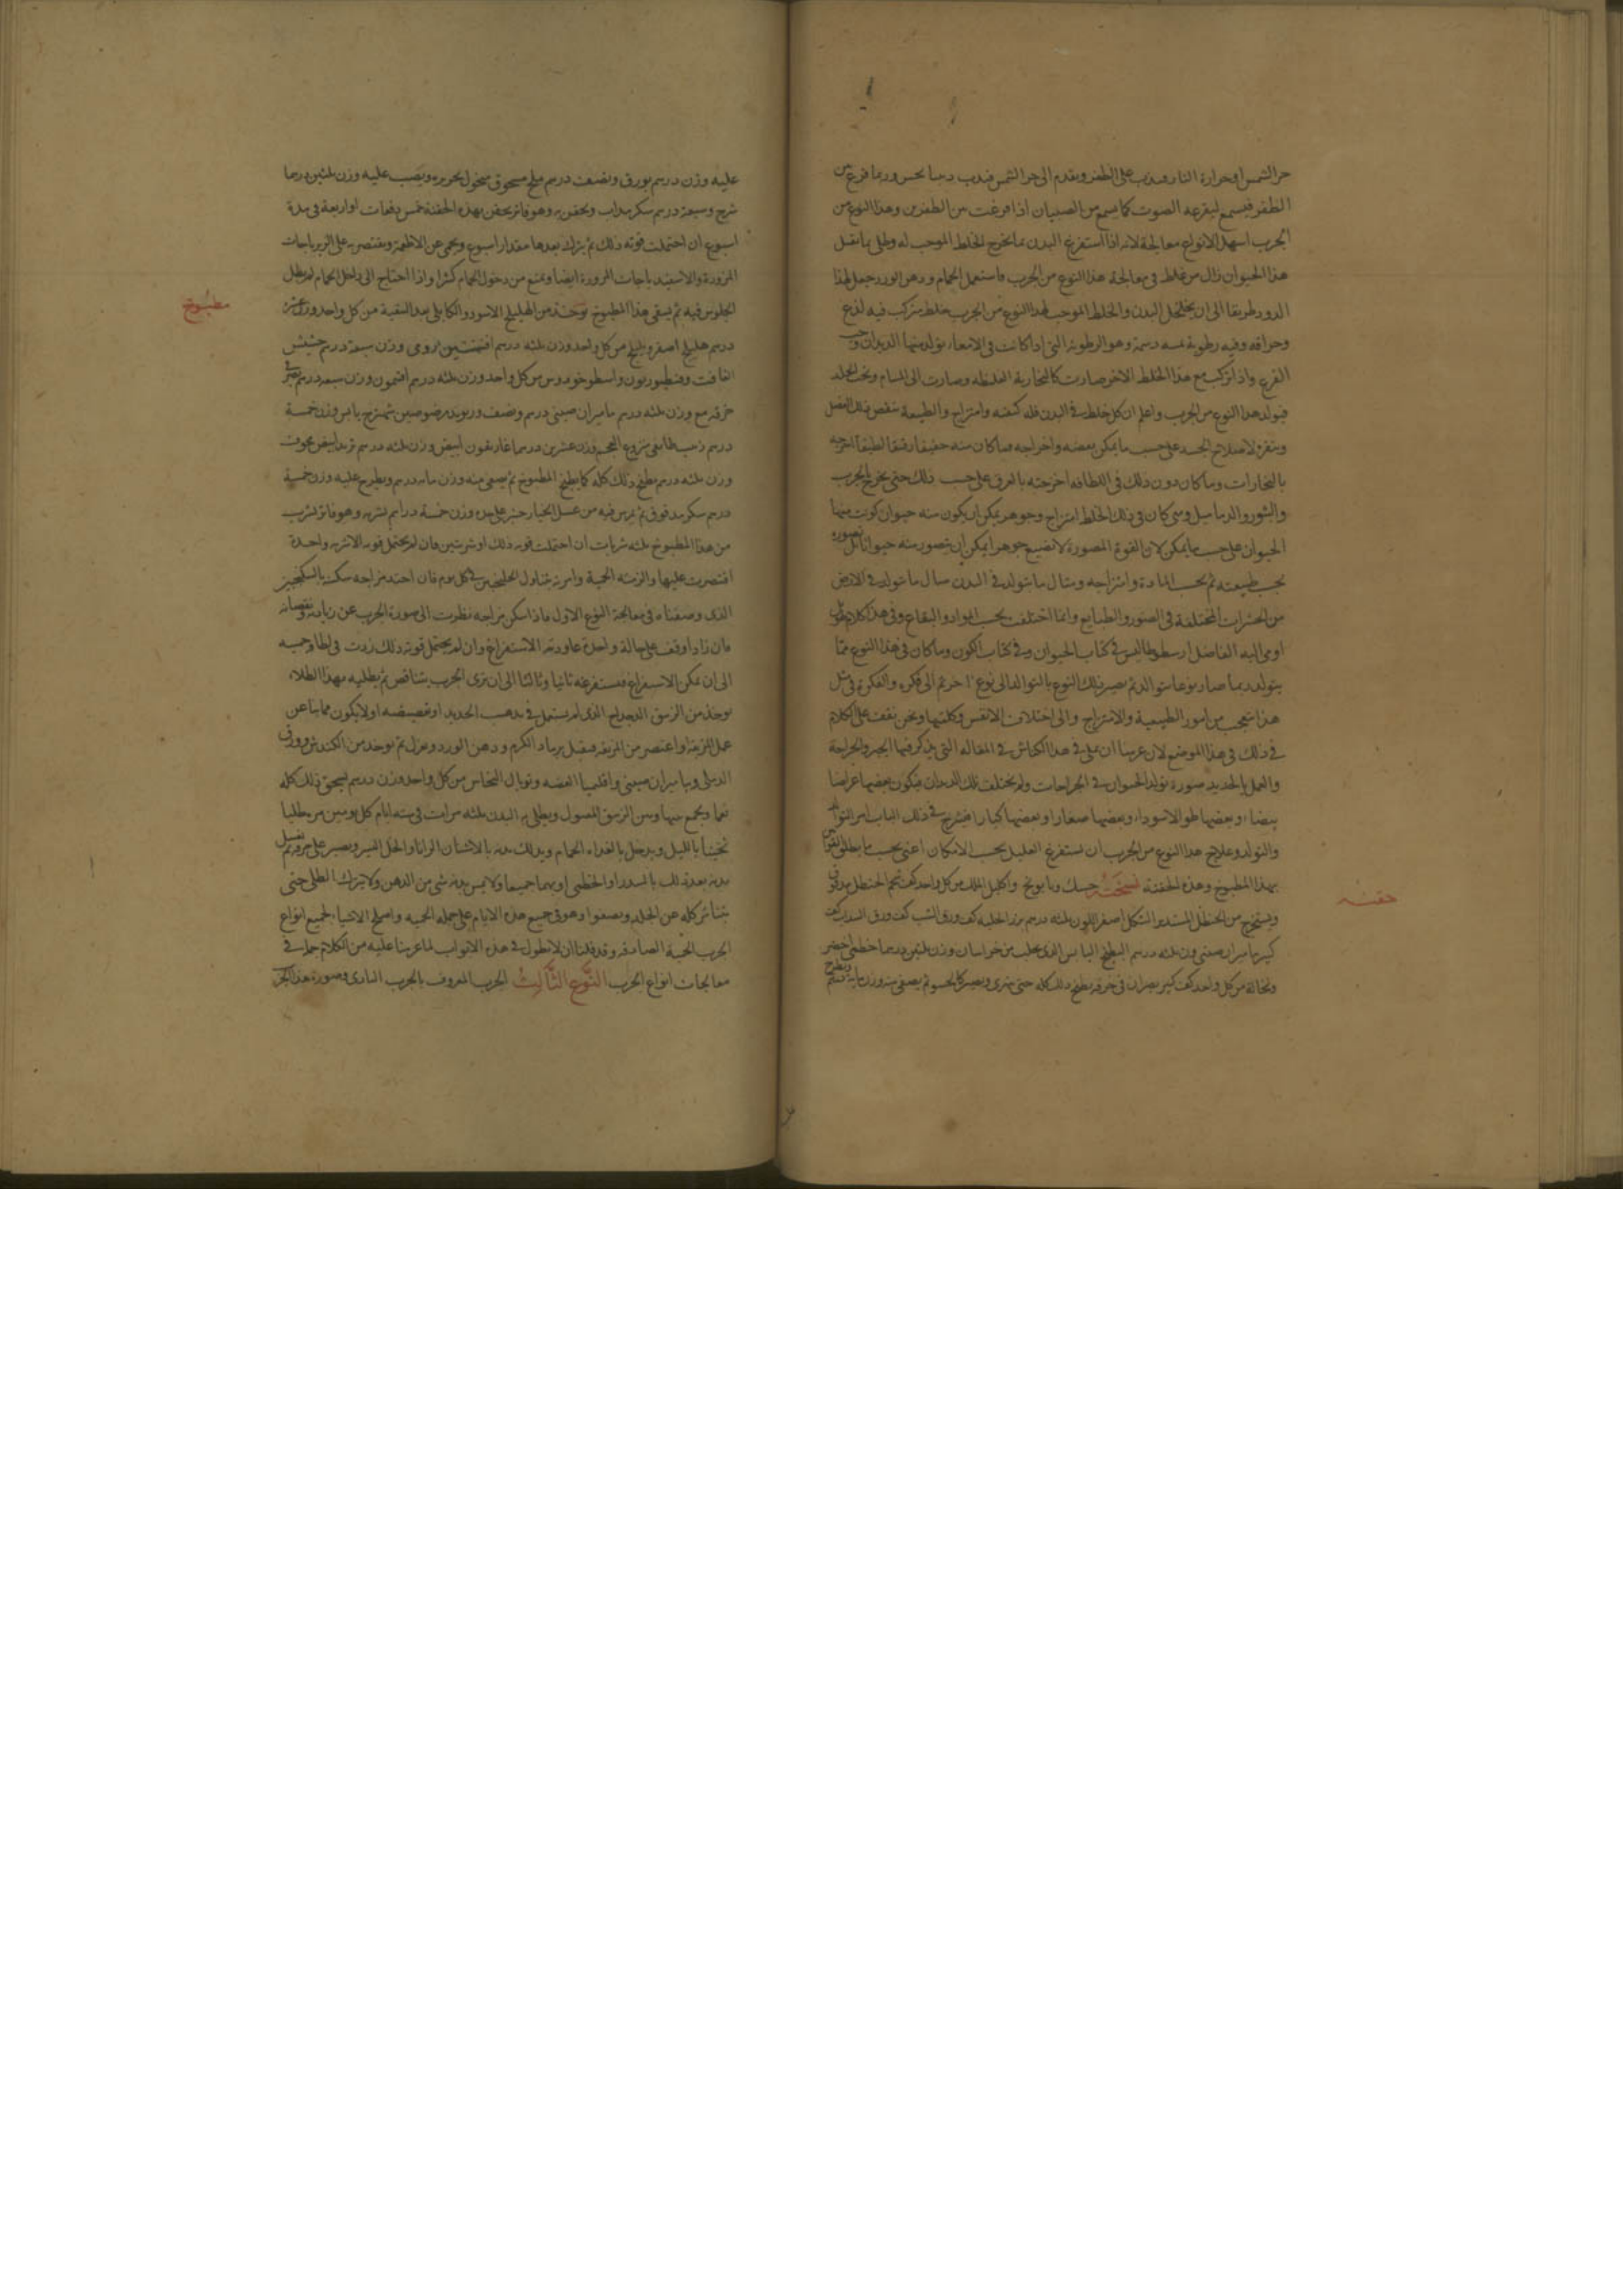 حر الشمس او حرارة النار على الظفر ويقدم الى حر الشمس فيدب دبيبا يحس وربما فرغ من
الظفر فيسمع لتفرقعه الصوت كما يسمع من الصيبان اذا فرغت من الظفرين وهذا النوع من
الجرب اسهل الانواع معالجة لانه اذا استفرغ البدن بما يخرج الخلط الموجب له وطلى بما يقتل
هذا الحيوان زال من غلط في معالجة هذا النوع من الجرب فاستعمل الحمام ودهن الورد جعل لهذا
الدود طريقا الى ان يتخلخل البدن والخلط الموجب لهذا النوع من الجرب خلط مركب فيه لذع
وحرافه وفيه رطوبة دسمة وهو الرطوبة التي اذا كانت في الامعاء تولد منها الديدان وحب
القرع واذا تركب مع هذا الخلط الاخر صارت كالبخارية الغليظه وصارت الى المسام وتحت الجلد
فيتولد هذا النوع من الجرب واعلم ان كل خلط في البدن فله كيفيه وامتزاج والطبيعة تنقص ذلك الفضل
لاصلاح الجسد على حسب ما يمكن بعضه واخراجه فما كان منه خفيفا رقيقا لطيفا اخرجه
بالبخارات وما كان دون ذلك في اللطافه اخرجته بالعرق على حسب ذلك حتى يخرج بالجرب
والبثور والدماميل ومتى كان في ذلك الخلط امتزاج وجوهر يمكن ان يكون منه حيوان كونت منها
الحيوان على حسب ما يمكن لان القوة المصورة لا تضيع جوهرا يمكن ان يتصور منه حيوانا بل تصوره
بحسب طبيعته ثم بحسب المادة وامتزاجه ومثال ما يتولد في البدن مثال ما يتولد في الارض
من الحشرات المختلفة في الصور والطبايع وانما اختلفت بحسب المواد والبقاع وفي هذا كلام طويل
اومى اليه الفاضل ارسطوطاليس في كتاب الحيوان وفي كتاب الكون وما كان في هذا النوع مما
يتولد ربما صار نوعا يتوالد ثم يصير ذلك النوع بالتوالد الى نوع اخر ثم الى فكره والفكرة في مثل
هذا تتعجب من امور الطبيعية والامتزاج والى اختلاف الانفس وكلتيها ونحن نقف على الكلام
في ذلك في هذا الموضع لان عزمنا ان نملي في هذا الكناش في المقاله التي يذكر فيها الجبر والجراحة
والعمل بالحديد صورة تولد الحيوان في الجراحات ولم يختلف تلك الديدان فيكون بعضها عراضا
بيضاء وبعضها طوالا سودا وبعضها صغارا وبعضها كبارا فيشرح في ذلك الباب امر التوالد
والتولد وعلاج هذا النوع من الجرب ان تستفرغ العليل بحسب الامكان اعني بحسب ما يطلق القوة
بهذا المطبوخ وهذه الحقنة نسخته حسك وبابونج واكليل الملك من كل واحد كف شحم الحنظل مدقوق
ويستخرج من الحنظل المستدير الشكل اصفر اللون ثلثه درهم بزر الحلبه كف ورق الشب كف ورق السدر كف
كبير ماميران صيني وزن ثلثه درهم البطيخ اليابس الذي يجلب من خراسان وزن ثلثين درهما خطمي اخضر
ونخالة من كل واحد كف كبير يصران في خرقه يطبخ ذلك كله حتى يتهرى ويصير كالحسو ثم يصفى منه وزن مايه درهم ويطرح
حقنه
عليه وزن درهم بورق ونصف درهم ملح مسحوق منخول بحريره ويصب عليه وزن ثلثين درهما
شيرج وسبعة درهم سكر يداب ويحقن به وهو فاتر يحقن بهذه الحقنة خمس دفعات او اربعة في مدة
اسبوع ان احتملت قوته ذلك ثم يترك بعدها مقدار اسبوع ويحمى عن الاطعمة ويقتصر به على الزيرباجات
المزورة والاسفيدباجات المزورة ايضا ويمنع من دخول الحمام كثيرا واذا احتاج الى دخول الحمام لم يطل
الجلوس فيه ثم يسقى هذا المطبوخ يؤخذ من الهليلج الاسود والكابلي بعد التنقية من كل واحد وزن عشرة
درهم هليلج اصفر وبليلج من كل واحد وزن ثلثه درهم افسنتين رومي وزن سبعة درهم حشيش
الغافت وقنطوريون واسطوخودوس من كل واحد وزن ثلثه درهم افتيمون وزن سبعه درهم يصر في
خرقه مع وزن ثلثه درهم ماميران صيني درهم ونصف وريوند مرضوضين شهترج يابس وزن خمسة
درهم زبيب طايفي منزوع العجم وزن عشرين درهما غاريقون ابيض وزن ثلثه درهم تربد ابيض مجوف
وزن ثلثه درهم يطبخ ذلك كله كما يطبخ المطبوخ ثم يصفى منه وزن مايه درهم ويطرح عليه وزن خمسة
درهم سكر مدقوق ثم يمرس فيه من عسل الخيار شنبر على حده وزن خمسة دراهم يشربه وهو فاتر يشرب
من هذا المطبوخ ثلثه شربات ان احتملت قوته ذلك او شربتين فان لم يحتمل قوته الا شربه واحدة
اقتصرت عليها والزمته الحمية وامرته بتناول الجلنجبين في كل يوم فان احتد مزاجه سكنته بالسكنجبين
الذي وصفناه في معالجة النوع الاول فاذا سكن مزاجه نظرت الى صورة الجرب عن زيادته ونقصانه
فان زاد او وقف على حالة واحدة عاودته الاستفراغ وان لم يحتمل قوته ذلك زدت في حميه
الى ان يمكن الاستفراغ فتستفرغه ثانيا وثالثا الى ان ترى الجرب يتناقص ثم يطليه بهذا الطلاء
يوخذ من الزيبق الذي لم يستعمل في تذهيب الحديد او تفضيضه
او اعتصر من المزبقه فيقتل برماد الكرم ودهن الورد ويعزل ثم يوخذ من الكندش وورق
الدفلى وماميران صيني واقليميا الفضه وتوبال النحاس من كل واحد وزن درهم يسحق ذلك كله
نعما ويجمع بينها وبين الزيبق المقتول ويطلى به البدن ثلثه مرات في سته ايام كل يومين مره طليا
ثخينا بالليل ويدخل بالغداه الحمام ويدلك بدنه بالاشنان والخل ويصبر على حرقه ثم يغسل
بدنه بعد ذلك بالسدر او الخطمي او بهما جميعا ولا يمس بدنه شي من الدهن ولا يترك الطلي حتى
يتناثر كله عن الجلد ويصفوا وهو في جميع هذه الايام على جمله الحميه واصلح الاشياء لجميع انواع
الجرب الحمية الصادقه وقد قلنا ان لا نطول في هذه الابواب لما عزمنا عليه من الكلام في
معالجات انواع الجرب النوع الثالث الجرب المعروف بالجرب الناري وصورة هذا الجرب
مطبوخ